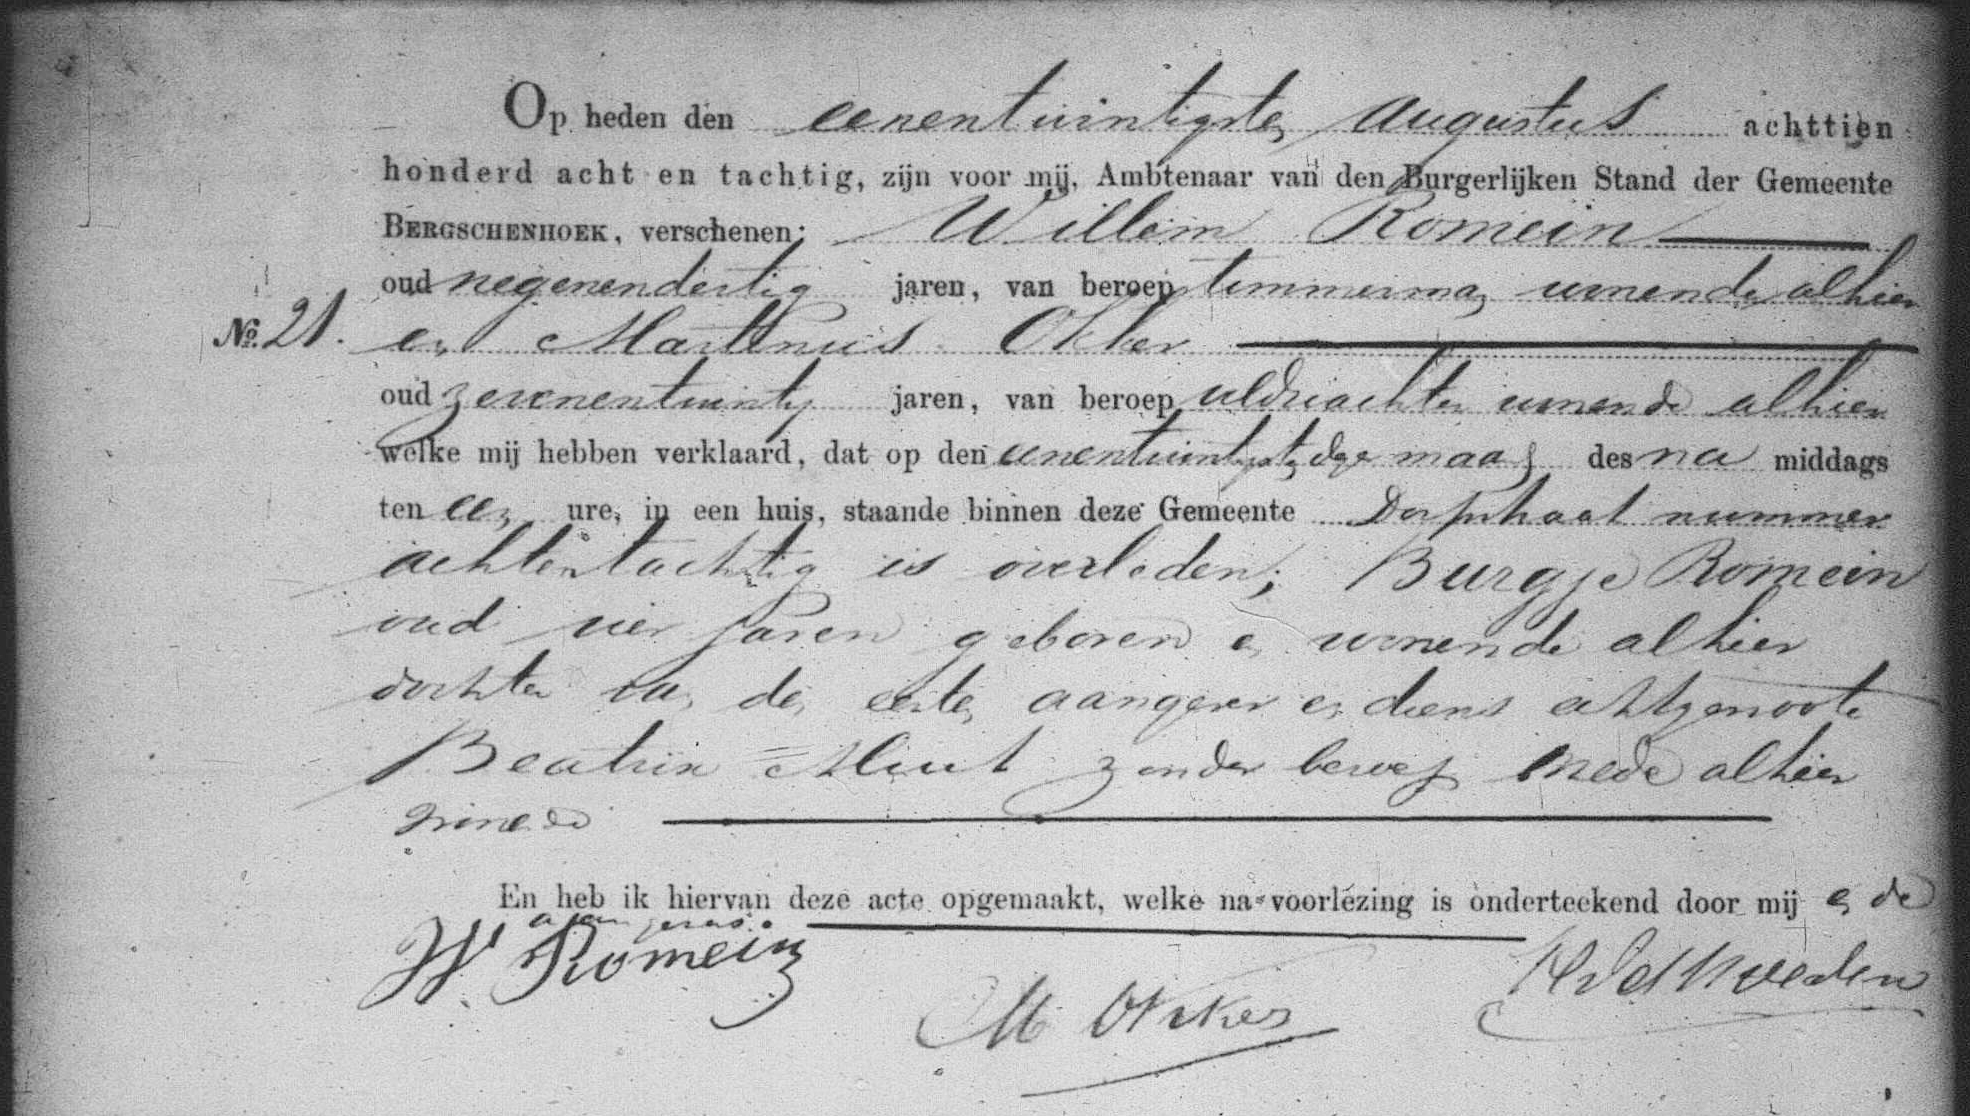 Op heden den eenentwintigsten Augustus achttien
honderd acht en tachtig, zijn voor mij, Ambtenaar van den Burgerlijken Stand der Gemeente
BERGSCHENHOEK, verschenen: Willem Romein
oud negenendertig jaren, van beroep timmerman wonende alhier
No. 21. en Martinus Okker
oud zevenentwintig jaren, van beroep veldwachter wonende alhier
welke mij hebben verklaard, dat op den eenentwintigsten dezer maand des na middags
ten een ure, in een huis, staande binnen deze Gemeente Dorpstraat nummer
achtentachtig is overleden; Burgje Romein
oud vier jaren geboren en wonende alhier
dochter van den eersten aangever en diens echtgenoote
Beatrix zonder beroep mede alhier
wonende
En heb ik hiervan deze acte opgemaakt, welke na voorlezing is onderteekend door mij en de
aangevers.
W Romein
M Okker